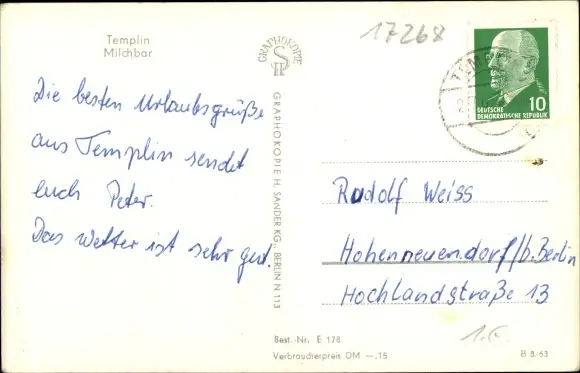 Templin
Milchbar
Die besten Urlaubsgrüße
aus Templin sendet
Euch Peter.
Das Wetter ist sehr gut.
GRAPHOKOPIE
GRAPHOKOPIE H. SANDER KG., BERLIN N 113
17268
10
DEUTSCHE
DEMOKRATISCHE REPUBLIK
Rudolf Weiss
Hohenneuendorf/b. Berlin
Hochlandstraße 13
Best.-Nr. E 178
Verbraucherpreis DM —,15
B 8/63